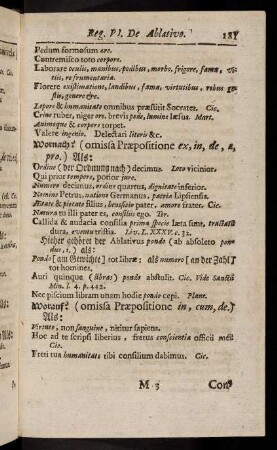 Reg. Pl. De Ablativo. 181
Pedum formosum ære.
Contremisco toto corpore.
Laborare oculis, manibus, pedibus, morbo, frigore, fama, vi-
tiis, re frumentaria.
Florere existimatione, laudibus, fama, virtutibus, rebus ge-
stis, genere &c.
Lepore & humanitate omnibus præstitit Socrates. Cic.
Crine ruber, niger ore, brevis pede, lumine læsus. Mart.
Animoque & corpore torpet.
Valere ingenio. Delectari literis &c.
Wornach? (omissa Præpositione ex, in, de, a,
pro.) Als:
Ordine (der Ordnung nach) decimus. Loco vicinior.
Qui prior tempore, potior jure.
Numero decimus, ordine quartus, dignitate inferior.
Nomine Petrus, natione Germanus, patria Lipsiensis.
Ætate & pietate filius, beneficiis pater, amore frater. Cic.
Natura tu illi pater es, consiliis ego. Ter.
Callida & audacia consilia prima specie læta sunt, tractatu
dura, eventu tristia. Liv. L. XXXV. c. 32.
Hieher gehöret der Ablativus pondo (ab absoleto pon-
dus, i.) als:
Pondo [am Gewichte] tot libræ: als numero [an der Zahl]
tot homines.
Auri quinque (libras) pondo abstulit. Cic. Vide Sanctii
Min. l. 4. p. 442.
Nec piscium libram unam hodie pondo cepi. Plaut.
Worauf? (omissa Præpositione in, cum, de.)
Als:
Virtute, non sanguine, nititur sapiens.
Hoc ad te scripsi liberius, fretus conscientia officii mei.
Cic.
Freti tua humanitate tibi consilium dabimus. Cic.
M 3 Con-